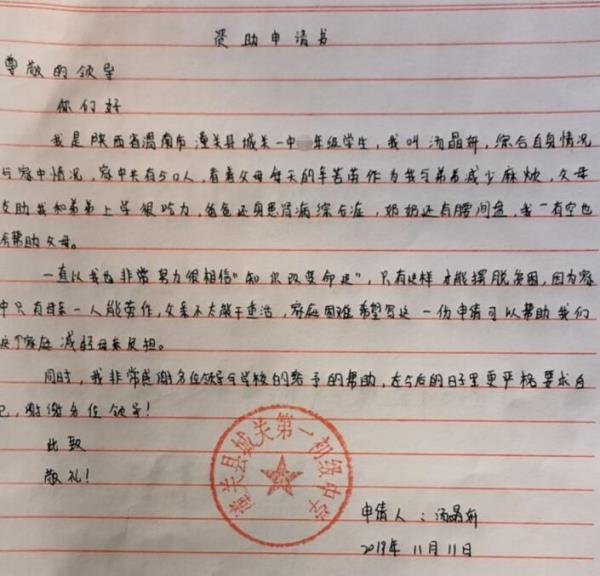 资助申请书
尊敬的领导
你们好
我是陕西省渭南市潼关县城关一中 年级学生，我叫汤晶妍，综合自身情况
与家中情况，家中共有5口人，有着父母每天的辛苦劳作为我与弟弟减少麻烦，父母
支助我和弟弟上学很吃力，爸爸还身患肾病综合症，奶奶还有腰间盘，我一有空也
会帮助父母。
一直以我也非常努力很相信"知识改变命运"，只有这样才能摆脱贫困，因为家
中只有母亲一人能劳作，父亲不太能干重活，家庭困难希望写这一份申请可以帮助我们
这个家庭减轻母亲负担。
同时，我非常感谢各位领导与学校的给予的帮助，在今后的日子里更严格要求自
己，谢谢各位领导！
此致
敬礼！
潼关县城关第一初级中学
申请人：汤晶妍
2019年11月11日